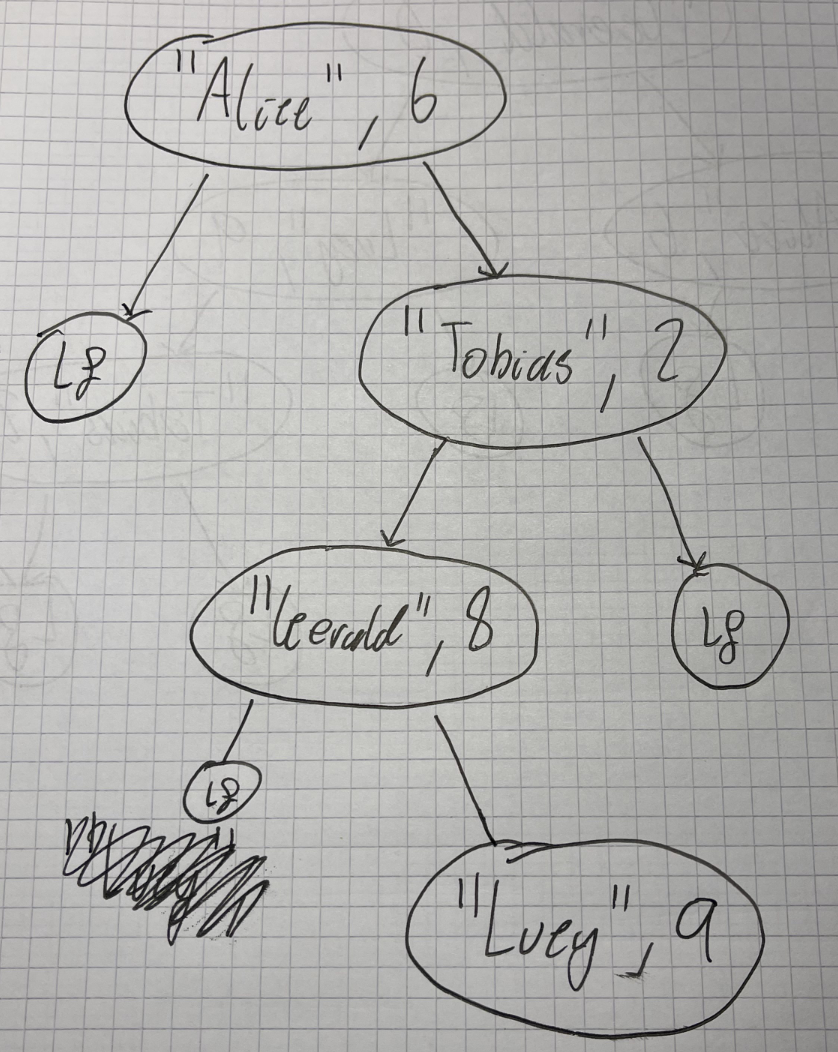 "Alice", 6
Lf
"Tobias", 2
"Gerald", 8
Lf
Lf
"Lucy", 9